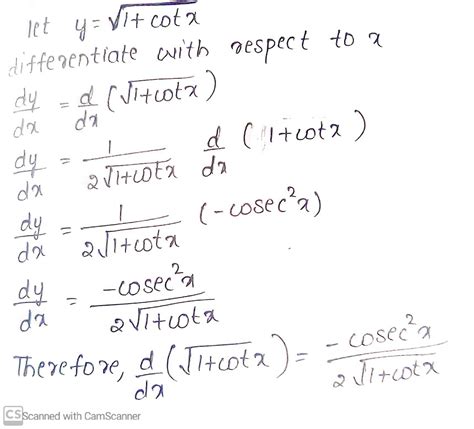 let y = √1+cotx
differentiate with respect to x
dy/dx = d/dx (√1+cotx)
dy/dx = 1/2√1+cotx d/dx (1+cotx)
dy/dx = 1/2√1+cotx (-cosec²x)
dy/dx = -cosec²x/2√1+cotx
Therefore, d/dx (√1+cotx) = -cosec²x/2√1+cotx
CS Scanned with CamScanner